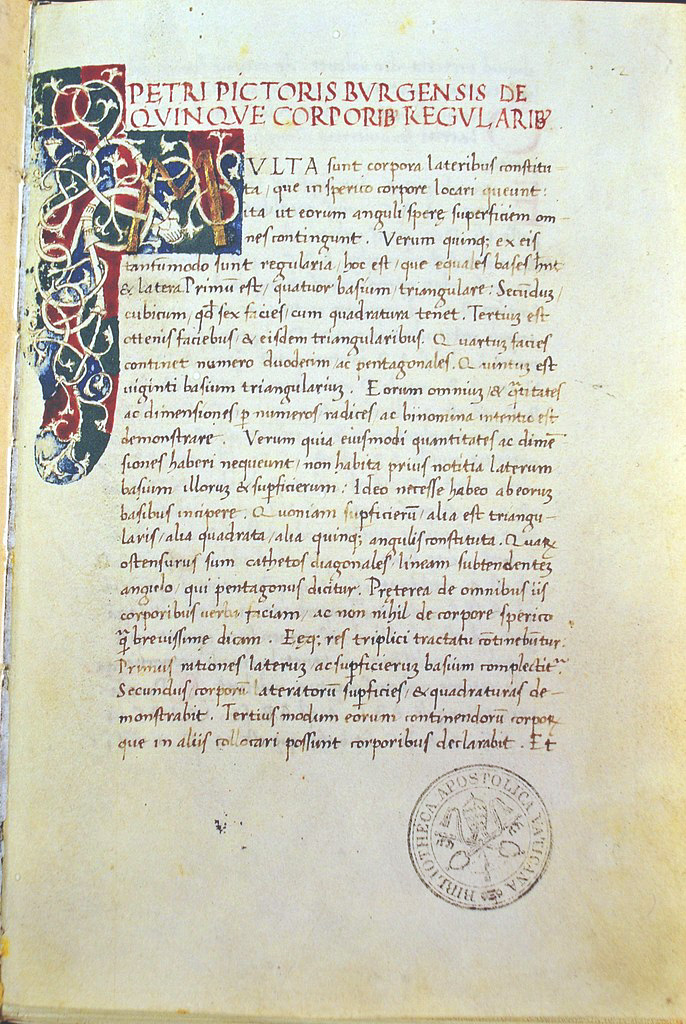 PETRI PICTORIS BVRGENSIS DE
QVINQVE CORPORIB REGVLARIB
MVLTA sunt corpora lateribus constitu-
ta, que in sperico corpore locari queunt:
ita ut eorum anguli spere superficiem om-
nes contingunt. Verum quinq; ex eis
tantumodo sunt regularia, hoc est, que equales bases hnt
& latera Primum est, quatuor basium, triangulare: Secundum,
cubicum, qd sex facies, cum quadratura tenet. Tertium est
ottenis faciebus, & eisdem triangularibus. Quartum facies
continet numero duodecim, ac pentagonales. Quintum est
uiginti basium triangularium. Eorum omnium, & qtitates
ac dimensiones, p numeros radices, ac binomina intentio est
demonstrare. Verum quia eiusmodi quantitates ac dimē
siones haberi nequeunt, non habita prius notitia laterum
basium illorum & supficierum: Ideo necesse habeo ab eorum
basibus incipere. Quoniam supficierū, alia est triangu-
laris, alia quadrata, alia quinq; angulis constituta. Quarum
ostensurus sum cathetos diagonales, lineam subtendentem
angulo, qui pentagonus dicitur. Preterea de omnibus iis
corporibus verba faciam, ac non nihil de corpore sperico
q̃ brevissime dicam. Eeq; res triplici tractatu cōtinebūtur.
Primus rationes laterum, ac supficierum basium complectitr
Secundus, corporū lateratorū supficies, & quadraturas de-
monstrabit. Tertius modum eorum continendorū corporum
que in aliis collocari possunt corporibus declarabit. Et
BIBLIOTHECA APOSTOLICA VATICANA